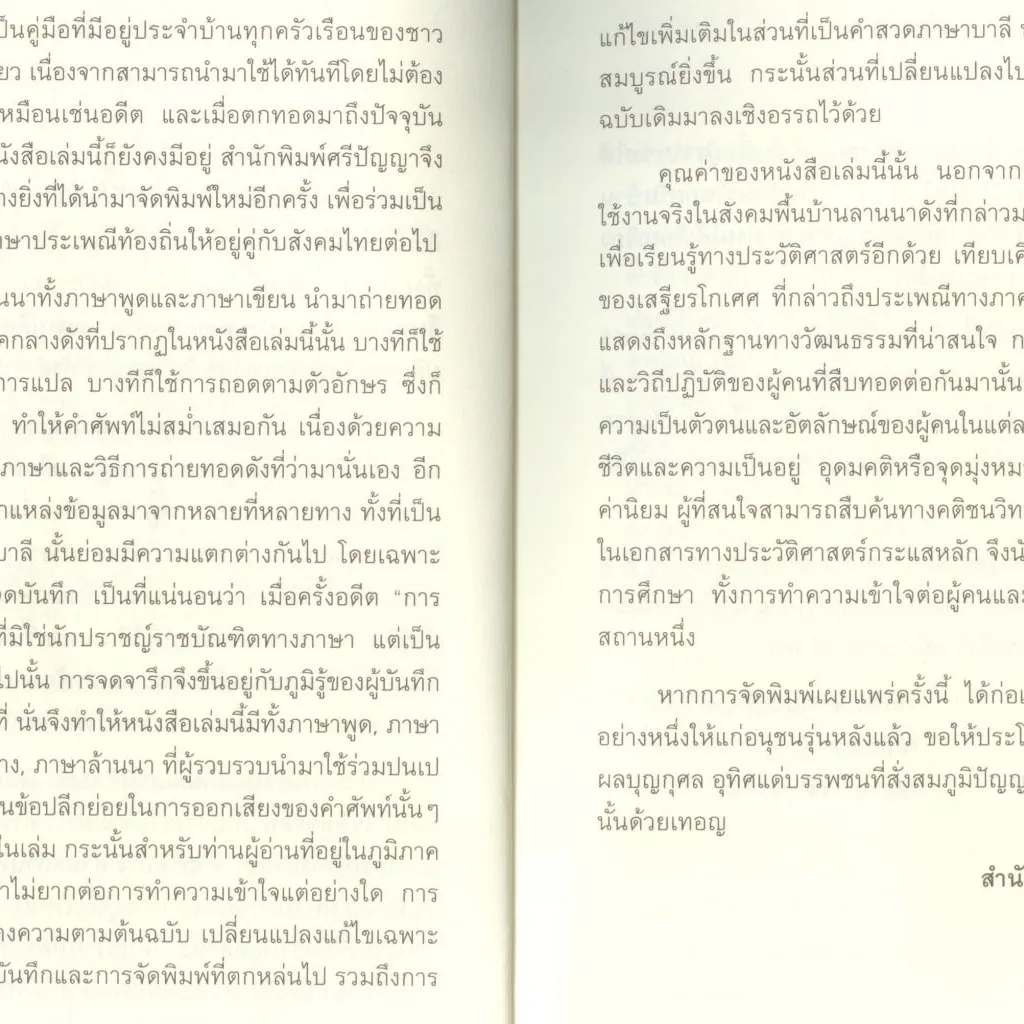 ป็นคู่มือที่มีอยู่ประจำบ้านทุกครัวเรือนของชาว
ยว เนื่องจากสามารถนำมาใช้ได้ทันทีโดยไม่ต้อง
หมือนเช่นอดีต และเมื่อตกทอดมาถึงปัจจุบัน
นังสือเล่มนี้ก็ยังคงมีอยู่ สำนักพิมพ์ศรีปัญญาจึง
างยิ่งที่ได้นำมาจัดพิมพ์ใหม่อีกครั้ง เพื่อร่วมเป็น
าษาประเพณีท้องถิ่นให้อยู่คู่กับสังคมไทยต่อไป
นนาทั้งภาษาพูดและภาษาเขียน นำมาถ่ายทอด
คกลางดังที่ปรากฏในหนังสือเล่มนี้นั้น บางทีก็ใช้
การแปล บางทีก็ใช้การถอดตามตัวอักษร ซึ่งก็
ทำให้คำศัพท์ไม่สม่ำเสมอกัน เนื่องด้วยความ
ภาษาและวิธีการถ่ายทอดดังที่ว่ามานั่นเอง อีก
าแหล่งข้อมูลมาจากหลายที่หลายทาง ทั้งที่เป็น
บาลี นั้นย่อมมีความแตกต่างกันไป โดยเฉพาะ
จดบันทึก เป็นที่แน่นอนว่า เมื่อครั้งอดีต “การ
ที่มิใช่นักปราชญ์ราชบัณฑิตทางภาษา แต่เป็น
ไปนั้น การจดจารึกจึงขึ้นอยู่กับภูมิรู้ของผู้บันทึก
ที่ นั่นจึงทำให้หนังสือเล่มนี้มีทั้งภาษาพูด, ภาษา
าง, ภาษาล้านนา ที่ผู้รวบรวบนำมาใช้ร่วมปนเป
นข้อปลีกย่อยในการออกเสียงของคำศัพท์นั้นๆ
ในเล่ม กระนั้นสำหรับท่านผู้อ่านที่อยู่ในภูมิภาค
าไม่ยากต่อการทำความเข้าใจแต่อย่างใด การ
คงความตามต้นฉบับ เปลี่ยนแปลงแก้ไขเฉพาะ
บันทึกและการจัดพิมพ์ที่ตกหล่นไป รวมถึงการ
แก้ไขเพิ่มเติมในส่วนที่เป็นคำสวดภาษาบาลี
สมบูรณ์ยิ่งขึ้น กระนั้นส่วนที่เปลี่ยนแปลงไป
ฉบับเดิมมาลงเชิงอรรถไว้ด้วย
คุณค่าของหนังสือเล่มนี้นั้น นอกจาก
ใช้งานจริงในสังคมพื้นบ้านลานนาดังที่กล่าวม
เพื่อเรียนรู้ทางประวัติศาสตร์อีกด้วย เทียบเคี
ของเสฐียรโกเศศ ที่กล่าวถึงประเพณีทางภาค
แสดงถึงหลักฐานทางวัฒนธรรมที่น่าสนใจ ก
และวิถีปฏิบัติของผู้คนที่สืบทอดต่อกันมานั้น
ความเป็นตัวตนและอัตลักษณ์ของผู้คนในแต่ล
ชีวิตและความเป็นอยู่ อุดมคติหรือจุดมุ่งหม
ค่านิยม ผู้ที่สนใจสามารถสืบค้นทางคติชนวิท
ในเอกสารทางประวัติศาสตร์กระแสหลัก จึงนั
การศึกษา ทั้งการทำความเข้าใจต่อผู้คนและ
สถานหนึ่ง
หากการจัดพิมพ์เผยแพร่ครั้งนี้ ได้ก่อเ
อย่างหนึ่งให้แก่อนุชนรุ่นหลังแล้ว ขอให้ประโ
ผลบุญกุศล อุทิศแด่บรรพชนที่สั่งสมภูมิปัญญ
นั้นด้วยเทอญ
สำนั